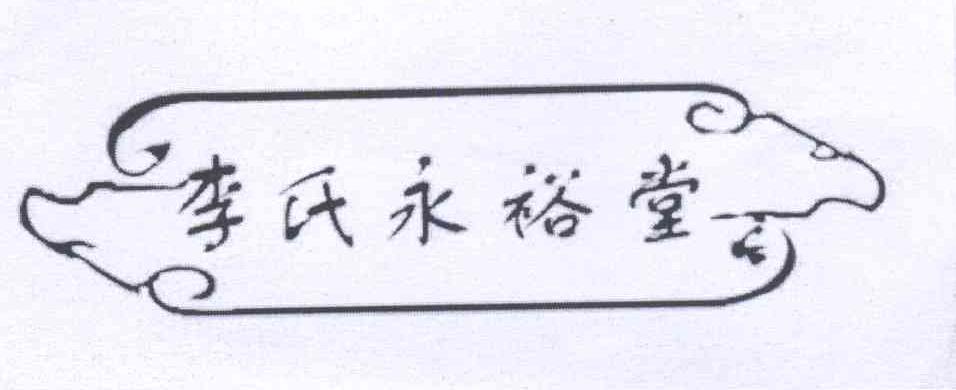 李氏永裕堂